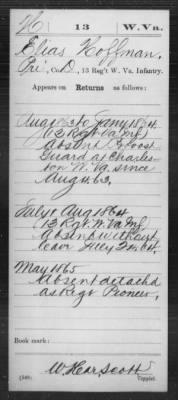 H | 13 | W.Va.
Elias Hoffman,
Pri., Co. D, 13 Reg't W. Va. Infantry.
Appears on Returns as follows:
Aug 1863 to Jany 1864.
(13 Regt. W. Va. Inf.)
absent Provost
Guard at Charles-
ton W. Va. since
Aug 4. 63.
July & Aug 1864.
(13 Regt. W. Va. Inf.
Absent without
leave July 24. 64.
May 1865
Absent detachd
as Regt Pioneer,
Book mark:
W. Hear Scott
(546) Copyist.